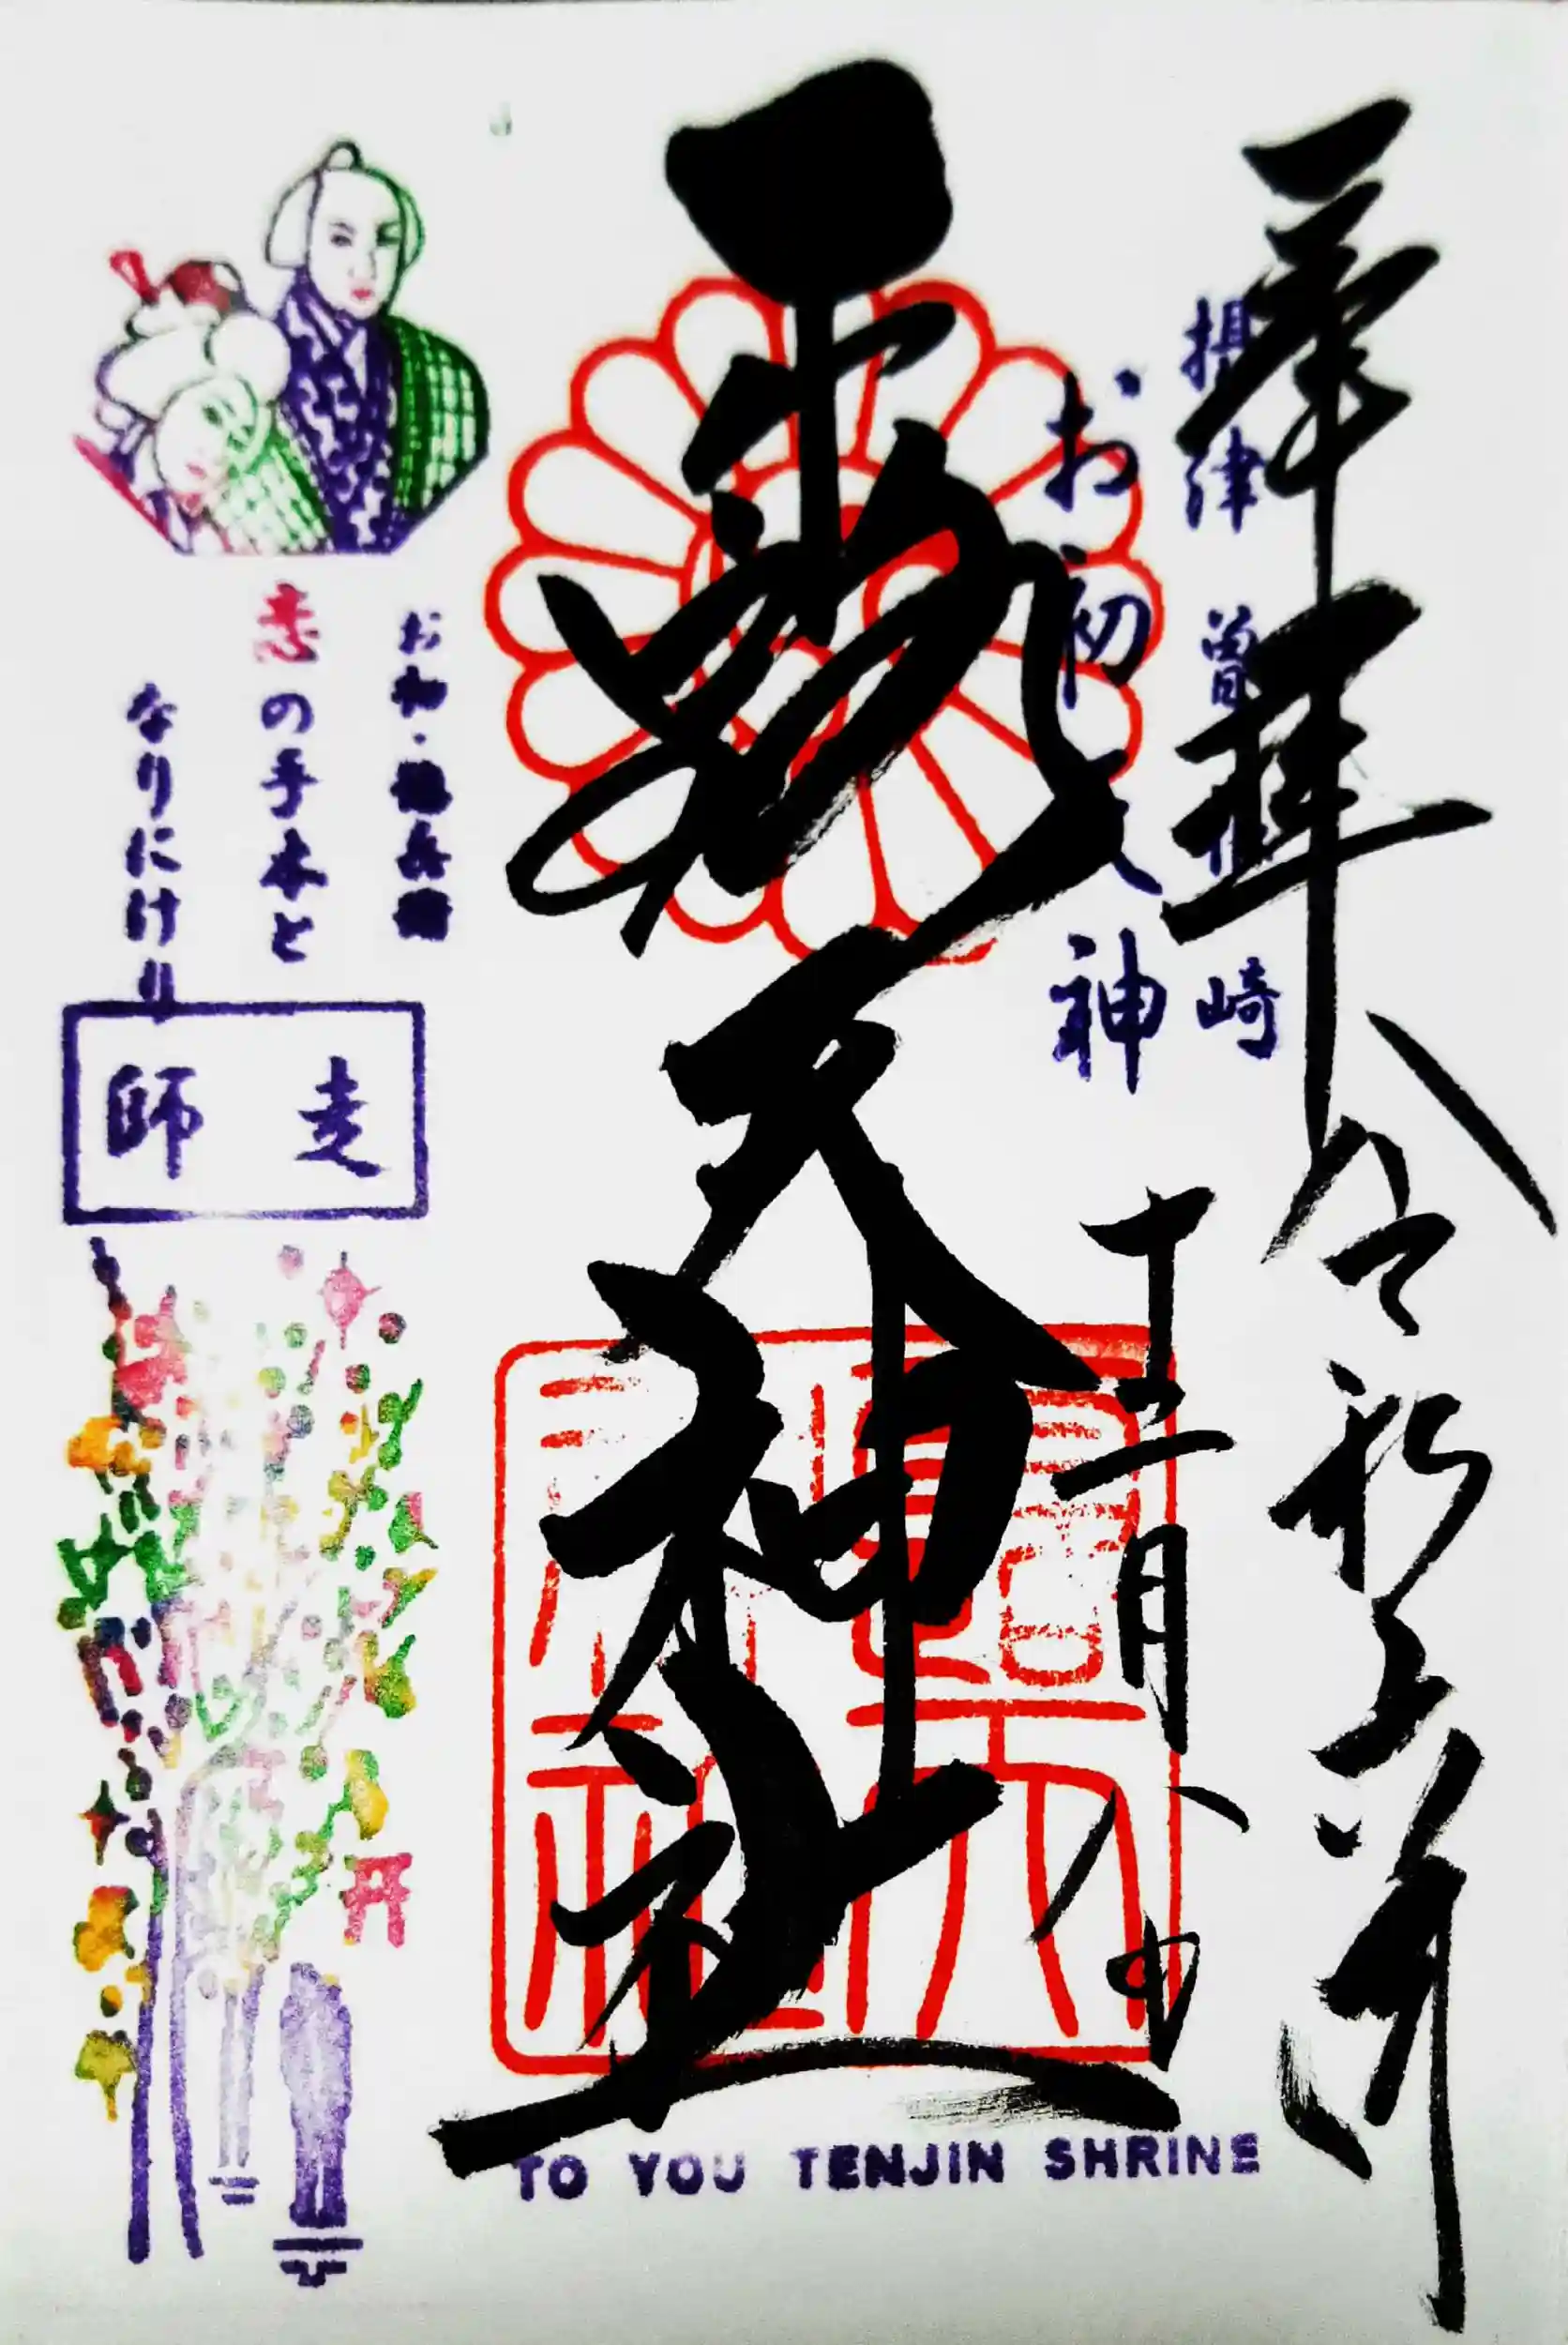 奉拝 令和六年
摂津 曽根崎
お初天神
十二月八日
露天神社
お初・徳兵衛
恋の手本と
なりにけり
師走
TO YOU TENJIN SHRINE